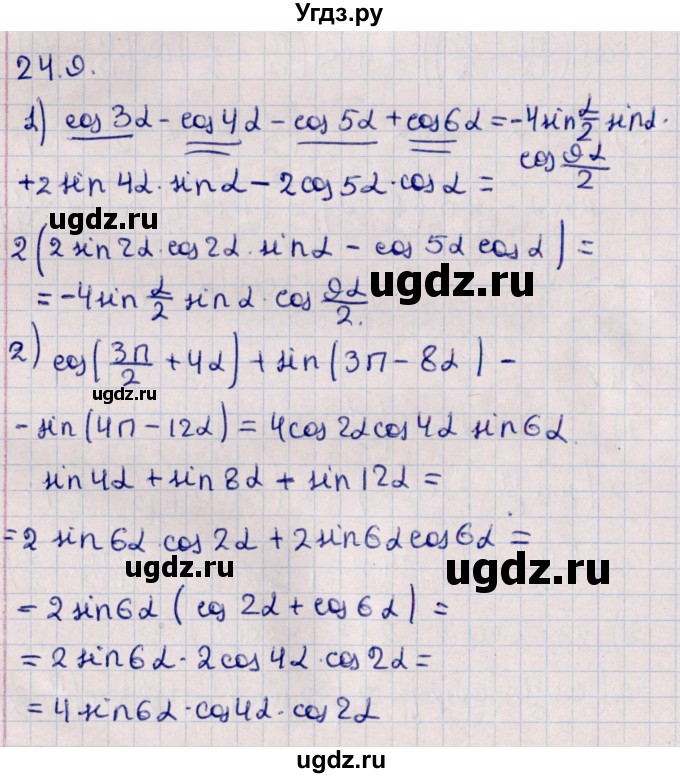 Угдз.ру
24.9.
1) cos 3α - cos 4α - cos 5α + cos 6α = -4 sin α/2 sin α ·
cos 9α/2
+ 2 sin 4α · sin α - 2 cos 5α · cos α =
ugdz.ru
2 (2 sin 2α · cos 2α · sin α - cos 5α cos α) =
= -4 sin α/2 sin α · cos 9α/2.
ugdz.ru
2) cos (3π/2 + 4α) + sin (3π - 8α) -
ugdz.ru
- sin (4π - 12α) = 4 cos 2α cos 4α sin 6α
sin 4α + sin 8α + sin 12α =
= 2 sin 6α · cos 2α + 2 sin 6α cos 6α =
ugdz.ru
ugdz.ru
= 2 sin 6α (cos 2α + cos 6α) =
= 2 sin 6α · 2 cos 4α · cos 2α =
= 4 sin 6α · cos 4α · cos 2α
ugdz.ru